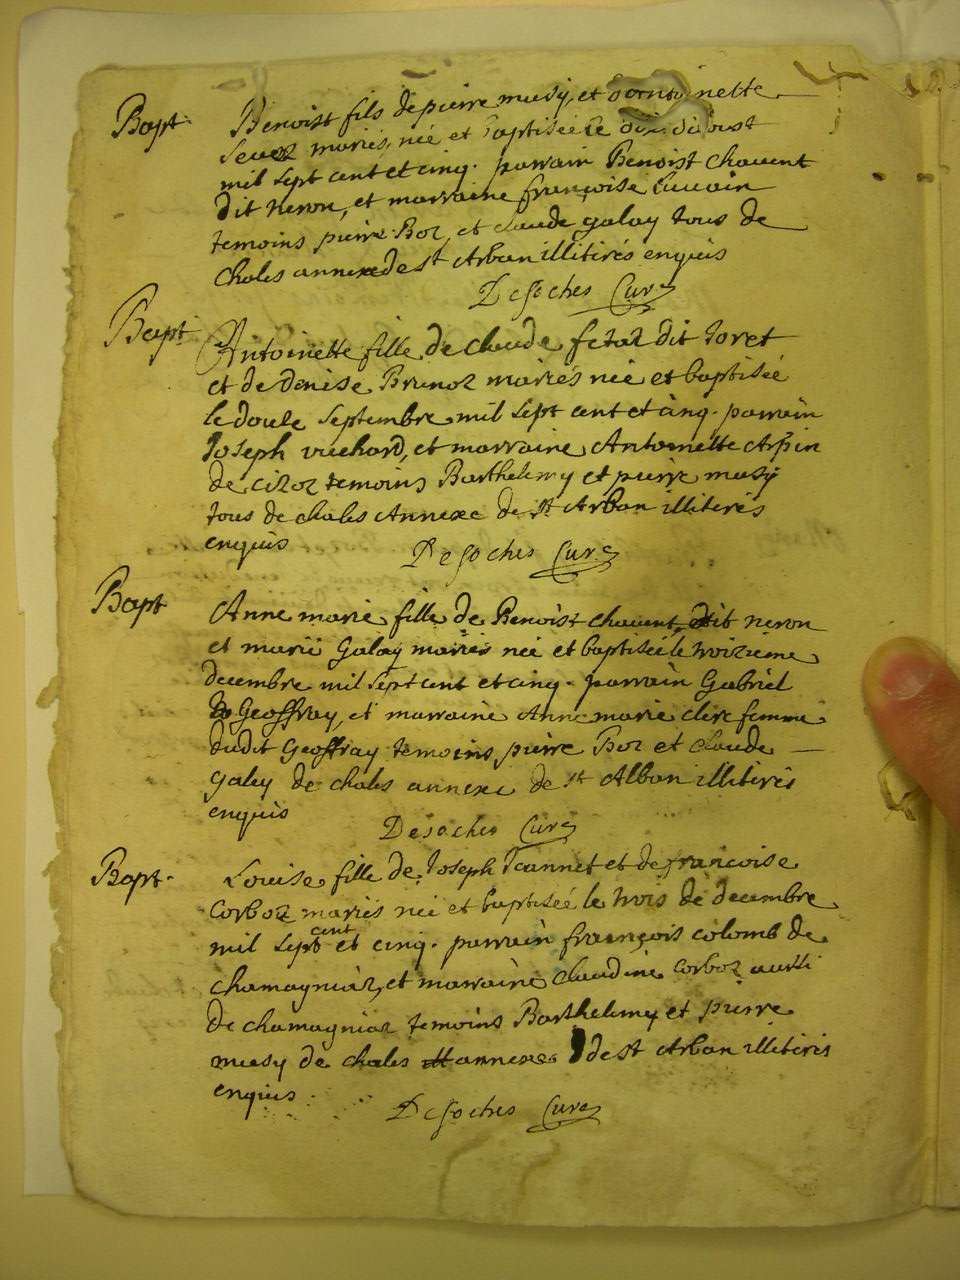 Bapt. Benoist fils de pierre musy, et d'antoinette
mariés, née et baptisée le dix d'aoust
mil sept cent et cinq. parrain Benoist chavent
dit neron, et marraine françoise
temoins pierre Boz, et claude galay tous de
chales annexe de st Arban illitirés enquis
Desoches Curé
Bapt. Antoinette fille de claude fetaz dit Joret
et de Denise Brunoz mariés née et baptisée
le douze septembre mil sept cent et cinq. parrain
Joseph vuchard, et marraine Antoinette Arpin
de cizoz temoins Barthelemy et pierre musy
tous de chales Annexe de st Arban illitirés
enquis
Desoches Curé
Bapt Anne marie fille de Benoist chavent dit neron
et marie Galay mariés née et baptisée le troizieme
decembre mil sept cent et cinq. parrain Gabriel
Geoffray, et marraine Anne marie clere femme
dudit Geoffray temoins pierre Boz et claude
galay de chales annexe de st Alban illitirés
enquis
Desoches Curé
Bapt. Louise fille de Joseph Jeannet et de françoise
corboz mariés née et baptisée le trois de decembre
mil sept cent et cinq. parrain françois colomb de
chamagniaz, et marraine claudine corboz aussi
de chamagniaz temoins Barthelemy et pierre
musy de chales annexe de st Arban illitirés
enquis.
Desoches Curé